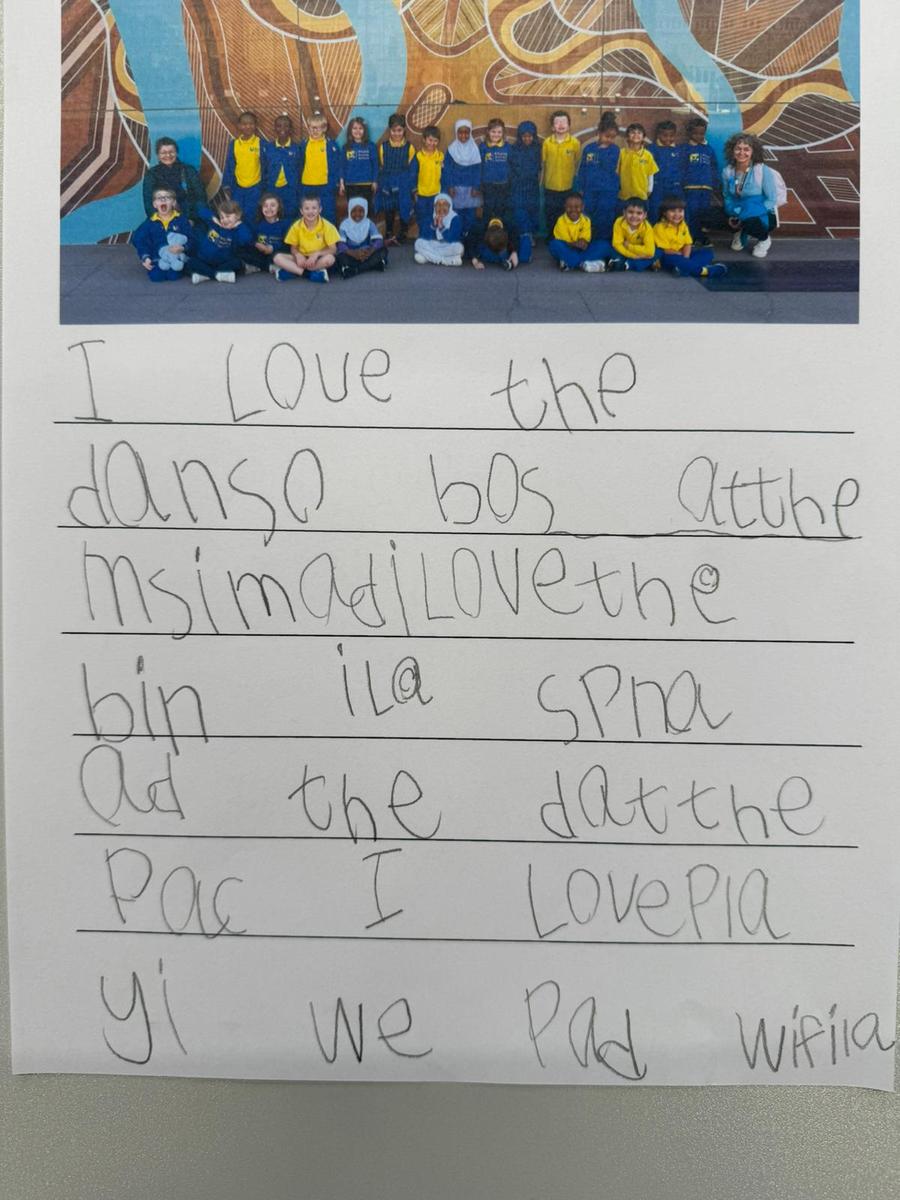 I Love the
danso bos atthe
msimadiLovethe
bin ila spna
ad the datthe
Pac I LovePla
yi we Pad wifila